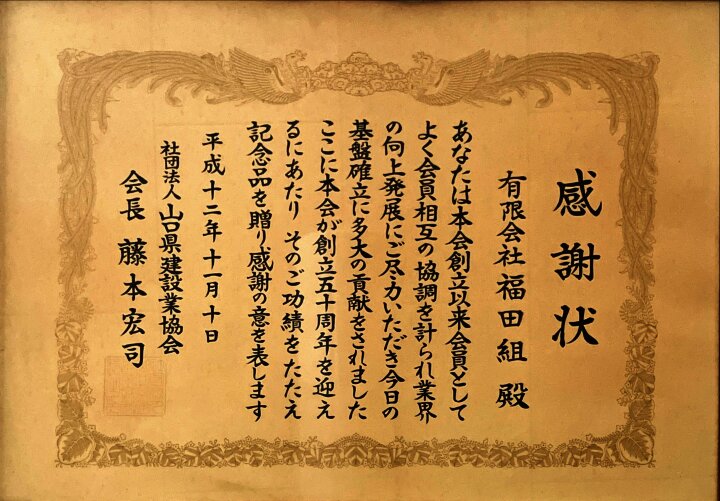 感謝状
有限会社福田組 殿
あなたは本会創立以来会員として
よく会員相互の協調を計られ業界
の向上発展にご尽力いただき今日の
基盤確立に多大の貢献をされました
ここに本会が創立五十周年を迎え
るにあたり そのご功績をたたえ
記念品を贈り感謝の意を表します
平成十二年十一月十日
社団法人山口県建設業協会
会長 藤本宏司